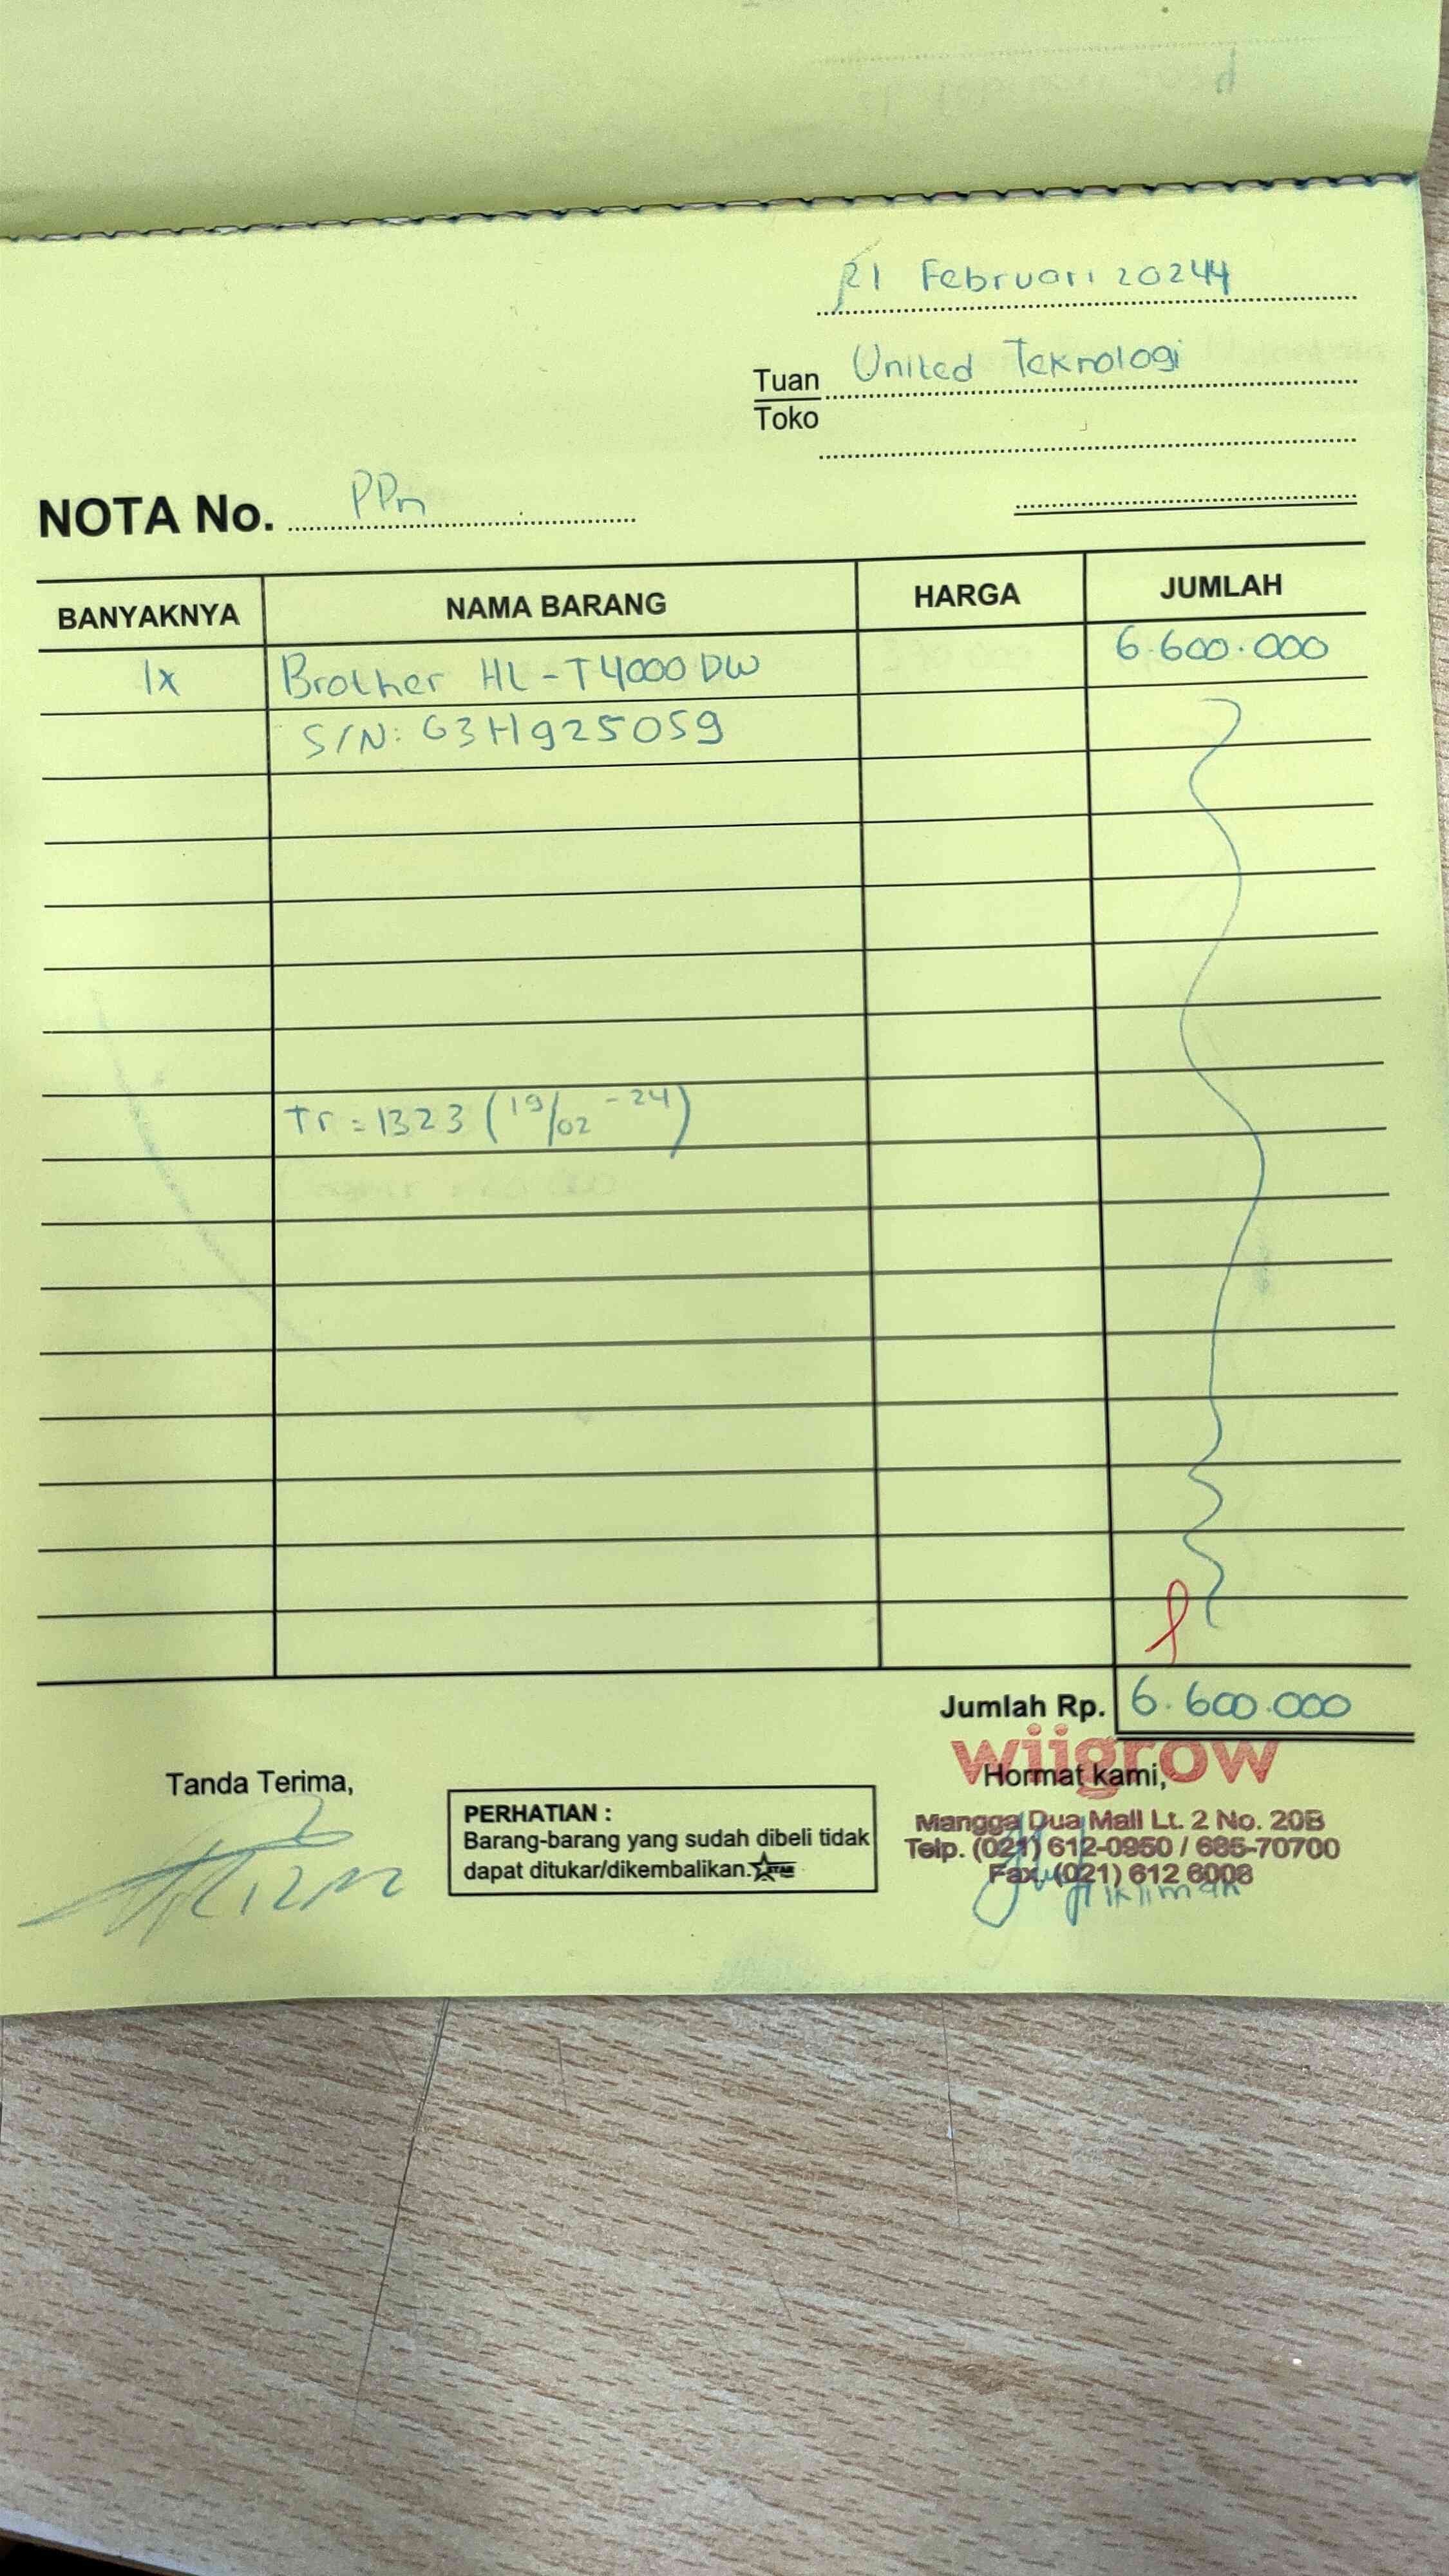 21 Februari 20244
Tuan United Teknologi
Toko
NOTA No. PPn
BANYAKNYA NAMA BARANG HARGA JUMLAH
1x Brother HL-T4000DW 6.600.000
S/N: G3H925059
Tr = 1323 (19/02 - 24)
Jumlah Rp. 6.600.000
wijgrow
Tanda Terima, Hormat kami,
PERHATIAN :
Barang-barang yang sudah dibeli tidak
dapat ditukar/dikembalikan.
Mangga Dua Mall Lt. 2 No. 20B
Telp. (021) 612-0950 / 685-70700
Fax. (021) 612 6008